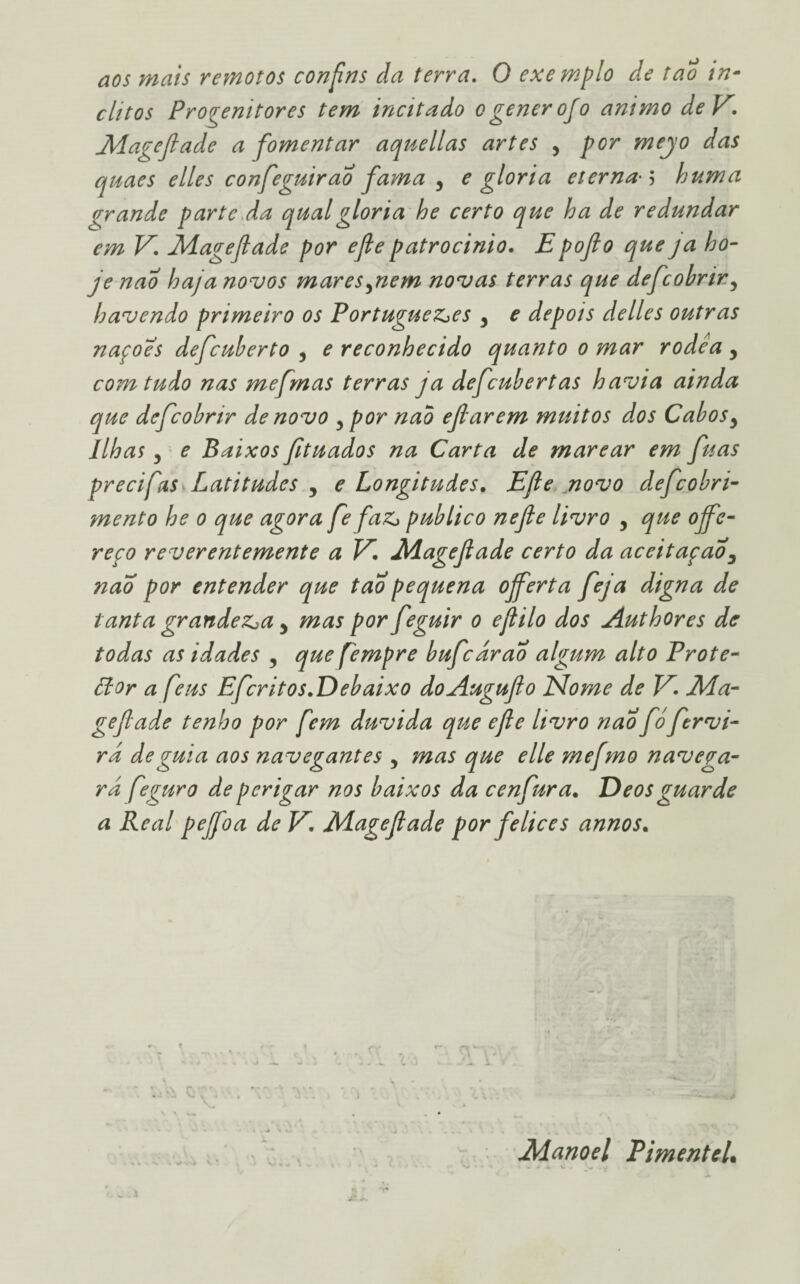 aos mais remotos confins da terra. O exemplo de taõ in-
clitos Progenitores tem incitado o generoſo animo de V.
Mageſtade a fomentar aquellas artes , por meyo das
quaes elles conſeguiraõ fama , e gloria eterna ; huma
grande parte da qual gloria he certo que ha de redundar
em V. Mageſtade por eſte patrocinio. E poſto que ja ho-
je naõ haja novos mares, nem novas terras que deſcobrir,
havendo primeiro os Portuguezes , e depois delles outras
naçoẽs deſcuberto , e reconhecido quanto o mar rodêa ,
com tudo nas meſmas terras ja deſcubertas havia ainda
que deſcobrir de novo , por naõ eſtarem muitos dos Cabos,
Ilhas , e Baixos ſituados na Carta de marear em ſuas
preciſas Latitudes , e Longitudes. Eſte novo deſcobri-
mento he o que agora ſe faz publico neſte livro , que offe-
reço reverentemente a V. Mageſtade certo da aceitaçaõ,
naõ por entender que taõ pequena offerta ſeja digna de
tanta grandeza , mas por ſeguir o eſtilo dos Authores de
todas as idades , que ſempre buſcáraõ algum alto Prote-
ctor a ſeus Eſcritos. Debaixo do Auguſto Nome de V. Ma-
geſtade tenho por ſem duvida que eſte livro naõ ſó ſervi-
rá de guia aos navegantes , mas que elle meſmo navega-
rá ſeguro de perigar nos baixos da cenſura. Deos guarde
a Real peſſoa de V. Mageſtade por felices annos.
Manoel Pimentel.